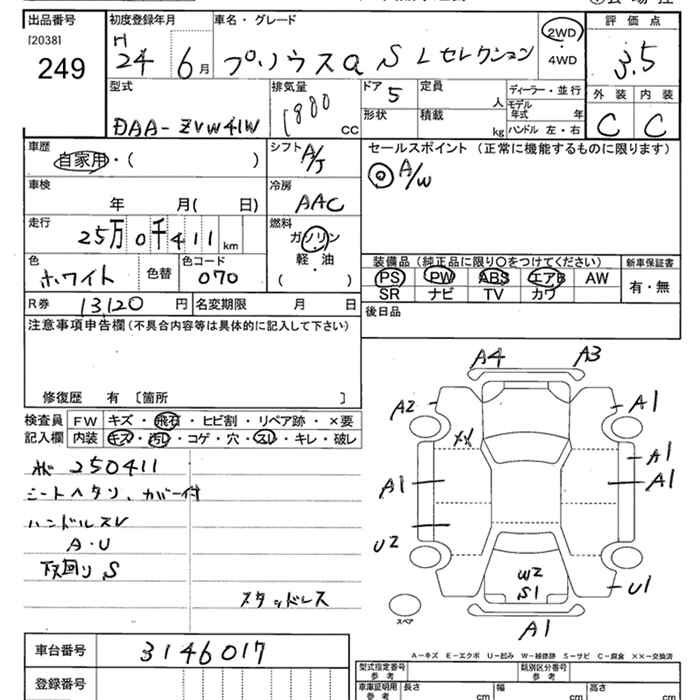 出品番号 初度登録年月 車名・グレード 評価点
[2038]
249
H
24 6月 プリウスα S Lセレクション 2WD・4WD 3.5
型式 排気量 ドア 定員 ディーラー・並行
DAA-ZVW41W 1800 cc 5 人 モデル年式 年
形状 積載 kg ハンドル 左・右
外装 内装
C C
車歴 シフト セールスポイント (正常に機能するものに限ります)
自家用・( ) A/T ◎ A/W
車検 冷房
年 月( 日) AAC
走行 燃料
25万0千411 km ガソリン
軽・油
( )
色 色替 色コード 装備品(純正品に限り○をつけてください) 新車保証書
ホワイト 070 PS PW ABS エアB AW 有・無
SR ナビ TV カワ
R券 13120円 名変期限 月 日 後日品
注意事項申告欄(不具合内容等は具体的に記入して下さい)
修復歴 有 〔箇所 〕
検査員記入欄 FW キズ・飛石・ヒビ割・リペア跡・×要
内装 キズ・汚レ・コゲ・穴・スレ・キレ・破レ
250411
シートヘタリ、カバー付
ハンドルスレ
A・U
下回り S
スタッドレス
A4 A3
A2 A1
XX
A1 A1
A1
U2
W2
S1 U1
スペア
A1
A-キズ E-エクボ U-凹み W-補修跡 S-サビ C-腐食 ××-交換済
車台番号 3146017
登録番号
型式指定番号 参考 類別区分番号 参考
車庫証明用 参考 長さ cm 幅 cm 高さ cm